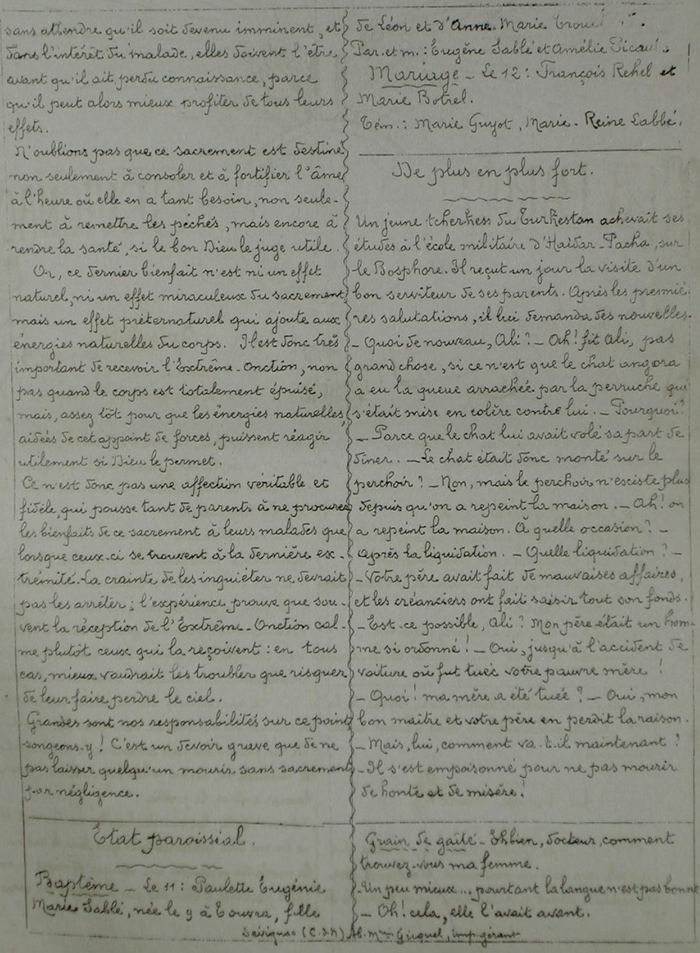 sans attendre qu'il soit devenu imminent, et
dans l'intérêt du malade, elles doivent l'être
avant qu'il ait perdu connaissance, parce
qu'il peut alors mieux profiter de tous leurs
effets.
N'oublions pas que ce sacrement est destiné
non seulement à consoler et à fortifier l'âme
à l'heure où elle en a tant besoin, non seule-
ment à remettre les péchés, mais encore à
rendre la santé, si le bon Dieu le juge utile.
Or, ce dernier bienfait n'est ni un effet
naturel, ni un effet miraculeux du sacrement
mais un effet préternaturel qui ajoute aux
énergies naturelles du corps. Il est donc très
important de recevoir l'Extrême-Onction, non
pas quand le corps est totalement épuisé,
mais, assez tôt pour que les énergies naturelles,
aidées de cet appoint de forces, puissent réagir
utilement si Dieu le permet.
Ce n'est donc pas une affection véritable et
fidèle, qui pousse tant de parents à ne procurer
les bienfaits de ce sacrement à leurs malades que
lorsque ceux-ci se trouvent à la dernière ex-
trémité. La crainte de les inquiéter ne devrait
pas les arrêter; l'expérience prouve que sou-
vent la réception de l'Extrême-Onction cal-
me plutôt ceux qui la reçoivent: en tous
cas, mieux vaudrait les troubler que risquer
de leur faire perdre le ciel.
Grandes sont nos responsabilités sur ce point
songeons-y! C'est un devoir grave que de ne
pas laisser quelqu'un mourir sans sacrement
par négligence.
État paroissial.
Baptême - Le 11: Paulette Eugénie
Marie Sablé, née le 9 à Couvra, fille
de Léon et d'Anne-Marie
Par. et m.: Eugène Sablé et Amélie
Mariage - Le 12: François Rehel et
Marie Botrel.
Tém.: Marie Guyot, Marie-Reine Labbé.
De plus en plus fort.
Un jeune tcherkess du Turkestan achevait ses
études à l'école militaire d'Haïdar-Pacha, sur
le Bosphore. Il reçut un jour la visite d'un
bon serviteur de ses parents. Après les premiè-
res salutations, il lui demanda des nouvelles.
- Quoi de nouveau, Ali? - Ah! fit Ali, pas
grand chose, si ce n'est que le chat angora
a eu la queue arrachée par la perruche qui
s'était mise en colère contre lui. - Pourquoi?
- Parce que le chat lui avait volé sa part de
dîner. - Le chat était donc monté sur le
perchoir? - Non, mais le perchoir n'existe plus
depuis qu'on a repeint la maison. - Ah! on
a repeint la maison. À quelle occasion? -
Après la liquidation. - Quelle liquidation? -
- Votre père avait fait de mauvaises affaires,
et les créanciers ont fait saisir tout son fonds.
- Est-ce possible, Ali? Mon père était un hom-
me si ordonné! - Oui, jusqu'à l'accident de
voiture où fut tuée votre pauvre mère!
- Quoi! ma mère a été tuée? - Oui, mon
bon maître et votre père en perdit la raison.
- Mais, lui, comment va-t-il maintenant?
- Il s'est empoisonné pour ne pas mourir
de honte et de misère!
Grain de gaîté - Eh bien, docteur, comment
trouvez-vous ma femme.
Un peu mieux... pourtant la langue n'est pas bonne
- Oh! cela, elle l'avait avant.
Sévignac (C.d.N) Ab. Mce Gicquel, imp. gérant